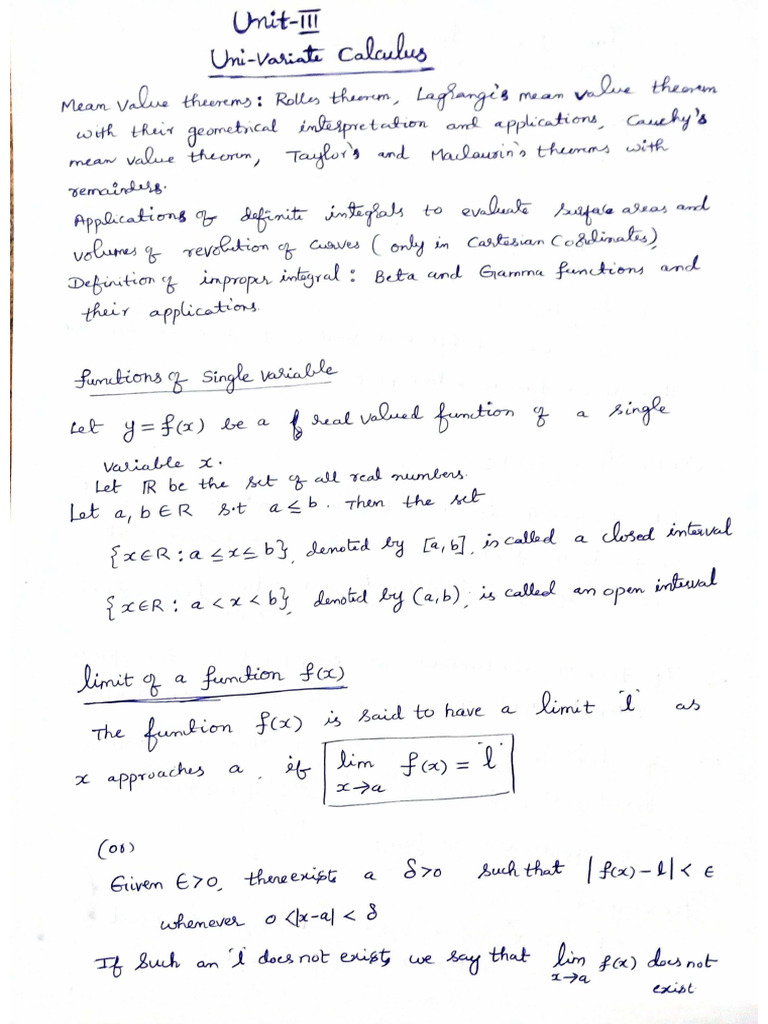 Unit-III
Uni-variate Calculus
Mean value theorems: Rolles theorem, Lagrange's mean value theorem
with their geometrical interpretation and applications, Cauchy's
mean value theorem, Taylor's and Maclaurin's theorems with
remainders.
Applications of definite integrals to evaluate surface areas and
volumes of revolution of curves (only in Cartesian Coordinates)
Definition of improper integral: Beta and Gamma functions and
their applications.
functions of Single variable
Let y = f(x) be a real valued function of a single
variable x.
Let ℝ be the set of all real numbers.
Let a, b ∈ R s.t a ≤ b. Then the set
{x∈R : a ≤ x ≤ b}, denoted by [a,b], is called a closed interval
{x∈R : a < x < b}, denoted by (a,b), is called an open interval
limit of a function f(x)
The function f(x) is said to have a limit 'l' as
x approaches a, if lim x→a f(x) = 'l'
(or)
Given ∈>0, there exists a δ>0 such that |f(x) - l| < ∈
whenever 0 <|x-a| < δ
If such an 'l' does not exist, we say that lim x→a f(x) does not
exist